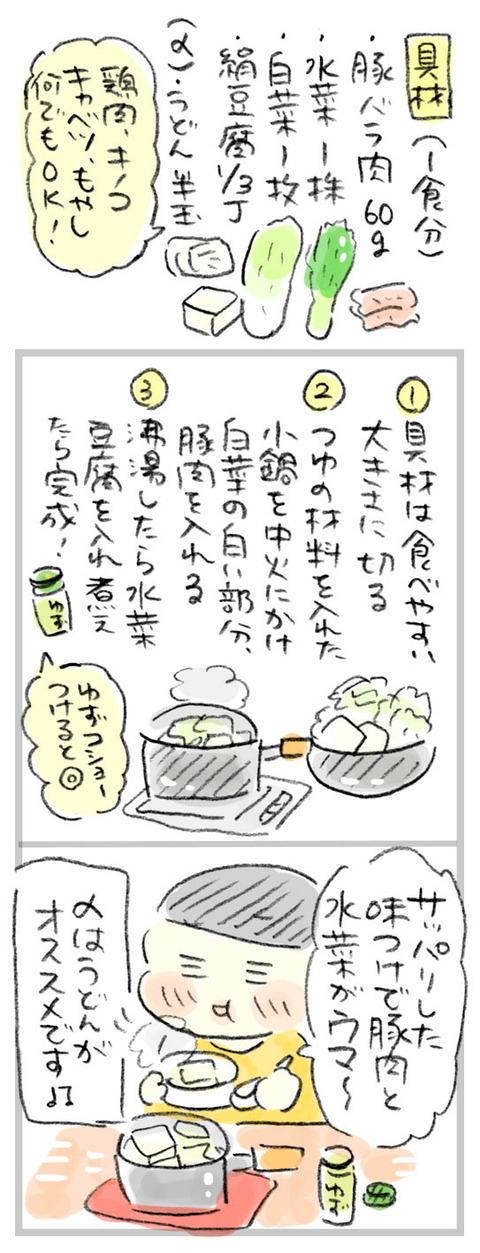 具材(一食分)
・豚バラ肉60g
・水菜一株
・白菜一枚
・絹豆腐1/3丁
(〆)・うどん半玉
鶏肉、キノコ
キャベツ、もやし
何でもOK!
①具材は食べやすい
大きさに切る
②つゆの材料を入れた
小鍋を中火にかけ
白菜の白い部分、
豚肉を入れる
③沸湯したら水菜
豆腐を入れ煮え
たら完成!
ゆず
ゆずコショー
つけると◎
サッパリした
味つけで豚肉と
水菜がウマ〜
〆はうどんが
オススメです♫
ゆず